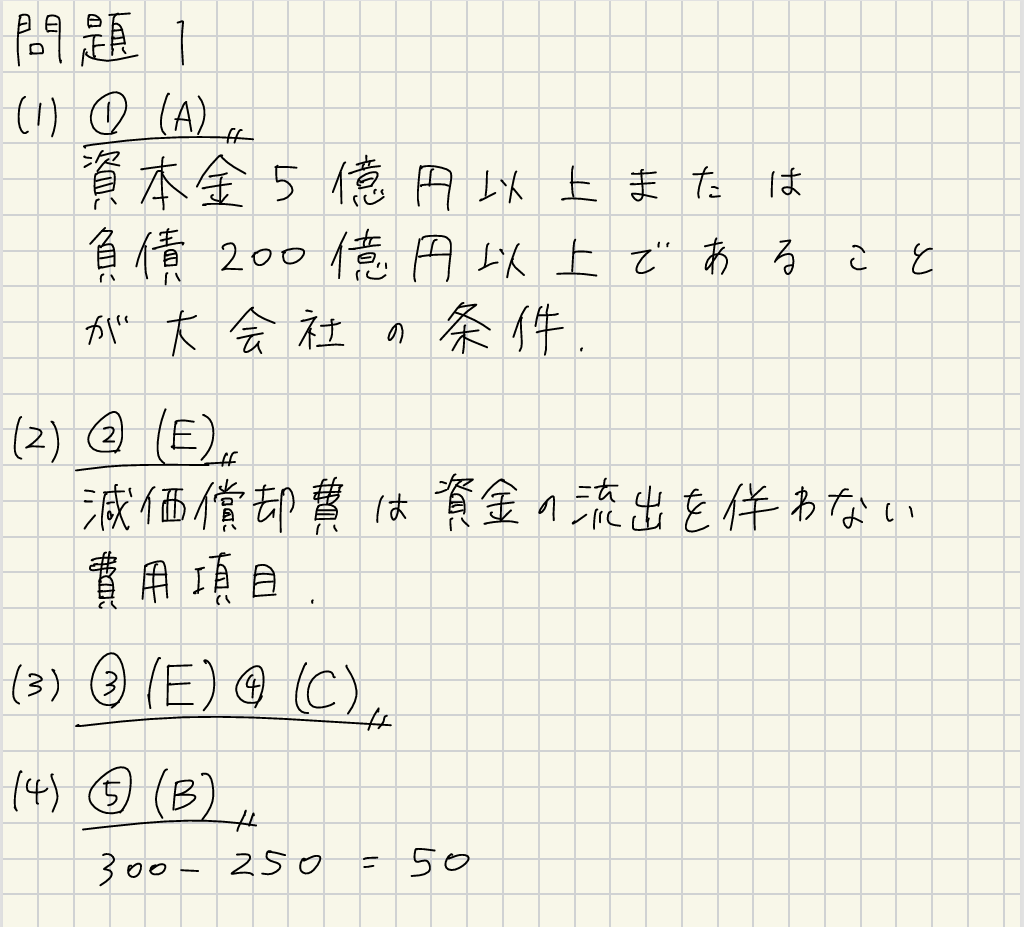 問題 1
(1) ① (A)〃
資本金 5 億円以上または
負債 200 億円以上であること
が大会社の条件.
(2) ② (E)〃
減価償却費は資金の流出を伴わない
費用項目.
(3) ③ (E) ④ (C)〃
(4) ⑤ (B)〃
300 - 250 = 50